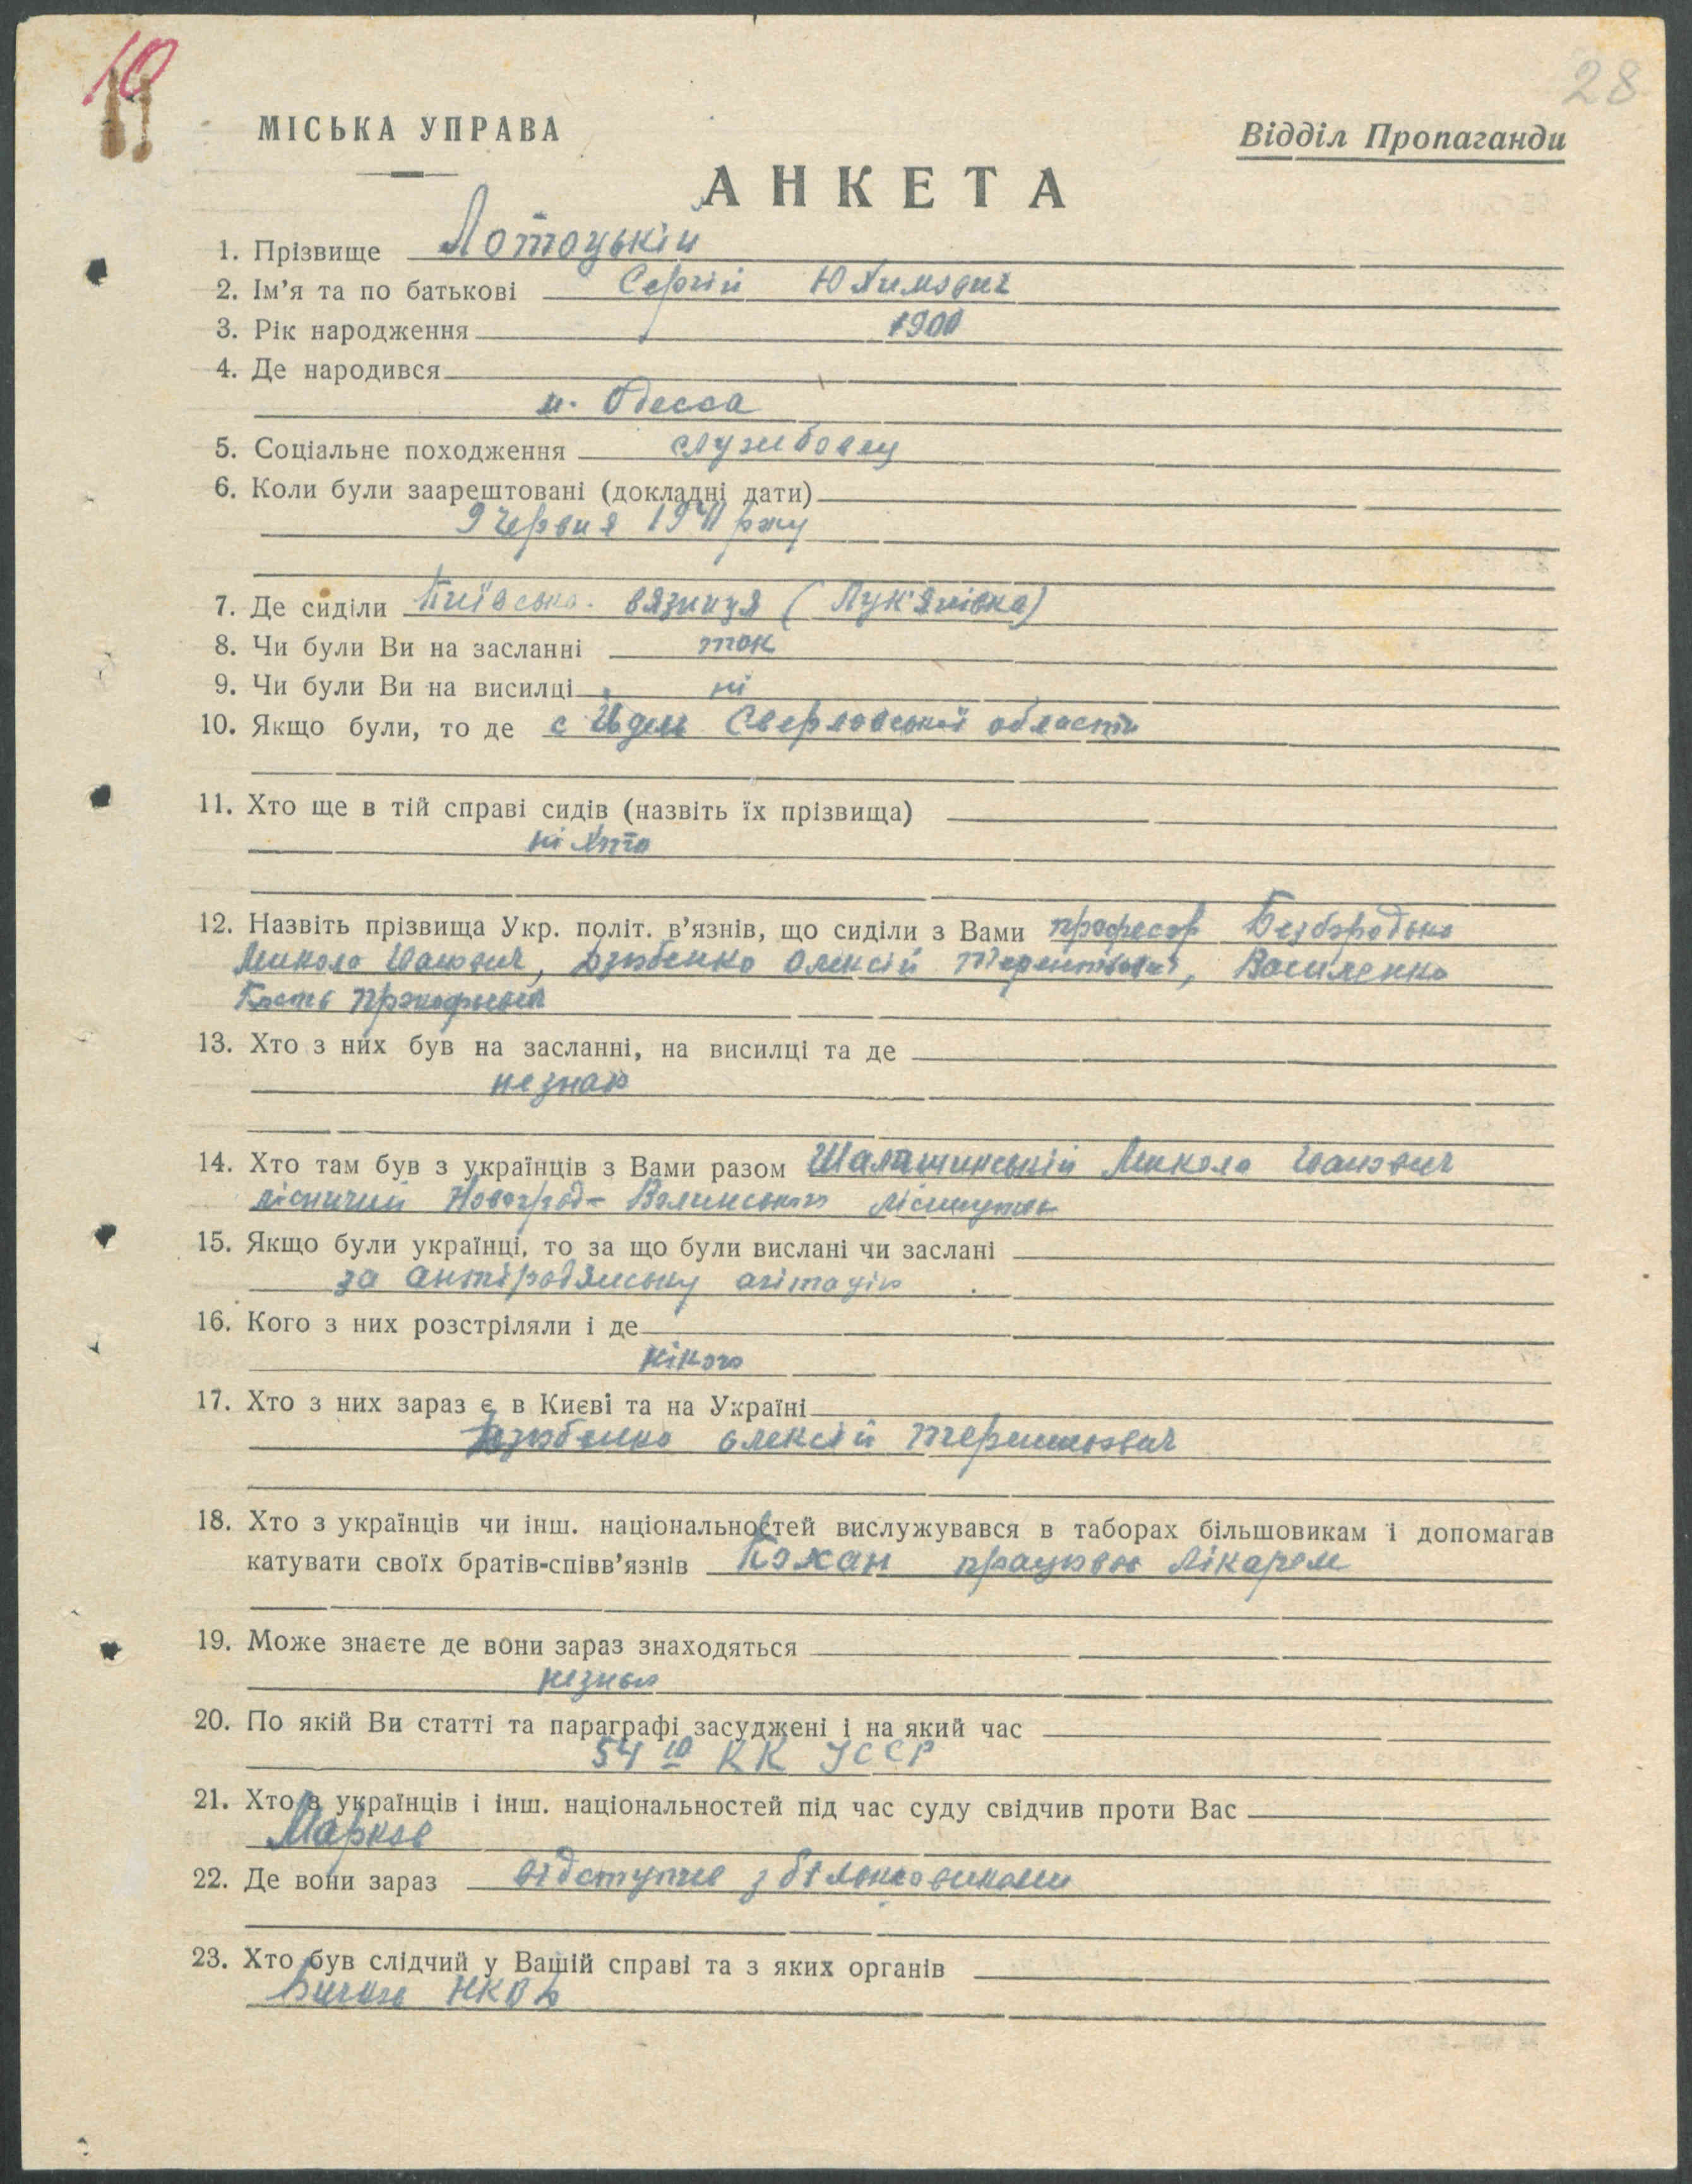 10
28
МІСЬКА УПРАВА
Відділ Пропаганди
АНКЕТА
1. Прізвище Лотоцькій
2. Ім’я та по батькові Сергій Юхимович
3. Рік народження 1900
4. Де народився
м. Одесса
5. Соціальне походження службовец
6. Коли були заарештовані (докладні дати)
9 червня 1941 року
7. Де сиділи Київська вязниця (Лук'янівка)
8. Чи були Ви на засланні так
9. Чи були Ви на висилці ні
10. Якщо були, то де с Ивдель Сверловської області
11. Хто ще в тій справі сидів (назвіть їх прізвища)
ні хто
12. Назвіть прізвища Укр. політ. в’язнів, що сиділи з Вами професор Безбородько
Микола Іванович, Дзюбенко Олексій Терентьевич, Василенко
Кость Прокофьевич
13. Хто з них був на засланні, на висилці та де
незнаю
14. Хто там був з українців з Вами разом Микола Іванович
лісничий Новоград-Волинського
15. Якщо були українці, то за що були вислані чи заслані
за антірадянську агітацію
16. Кого з них розстріляли і де
нікого
17. Хто з них зараз є в Києві та на Україні
Дзюбенко олексій
18. Хто з українців чи інш. національностей вислужувався в таборах більшовикам і допомагав
катувати своїх братів-співв’язнів Кохан працював лікарем
19. Може знаєте де вони зараз знаходяться
незнаю
20. По якій Ви статті та параграфі засуджені і на який час
54 10 КК УССР
21. Хто з українців і інш. національностей під час суду свідчив проти Вас
Марков
22. Де вони зараз відступив з більшовиками
23. Хто був слідчий у Вашій справі та з яких органів
НКВД